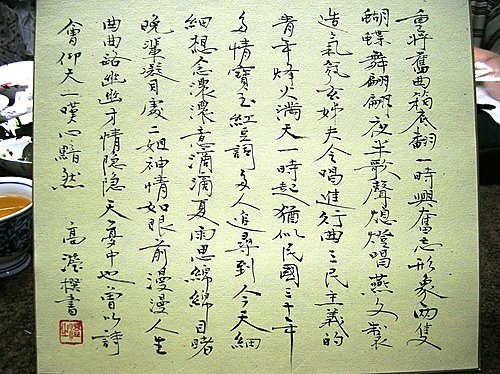 重將舊曲箱底翻一時興奮忘形象兩隻
蝴蝶舞翩翩夜半歌聲熄燈唱燕文製
造氣氛玄姊夫今唱進行曲三民主義的
青年烽火滿天一時起猶似民國三十年
多情寶玉紅豆詞多人追尋到今天細
細想念濃濃意滴滴夏雨思綿綿目睹
晚輩凝目處二姐神情如眼前漫漫人生
曲曲路幽幽才情隱隱天夢中也曾以詩
會仰天一嘆心黯然
高撰書